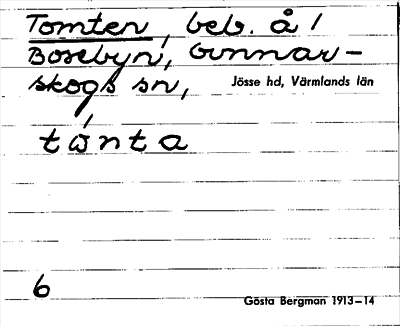 Tomten, beb. å /
Bosebyn, Gunnar-
skogs sn,
Jösse hd, Värmlands län
tònta
6
Gösta Bergman 1913–14